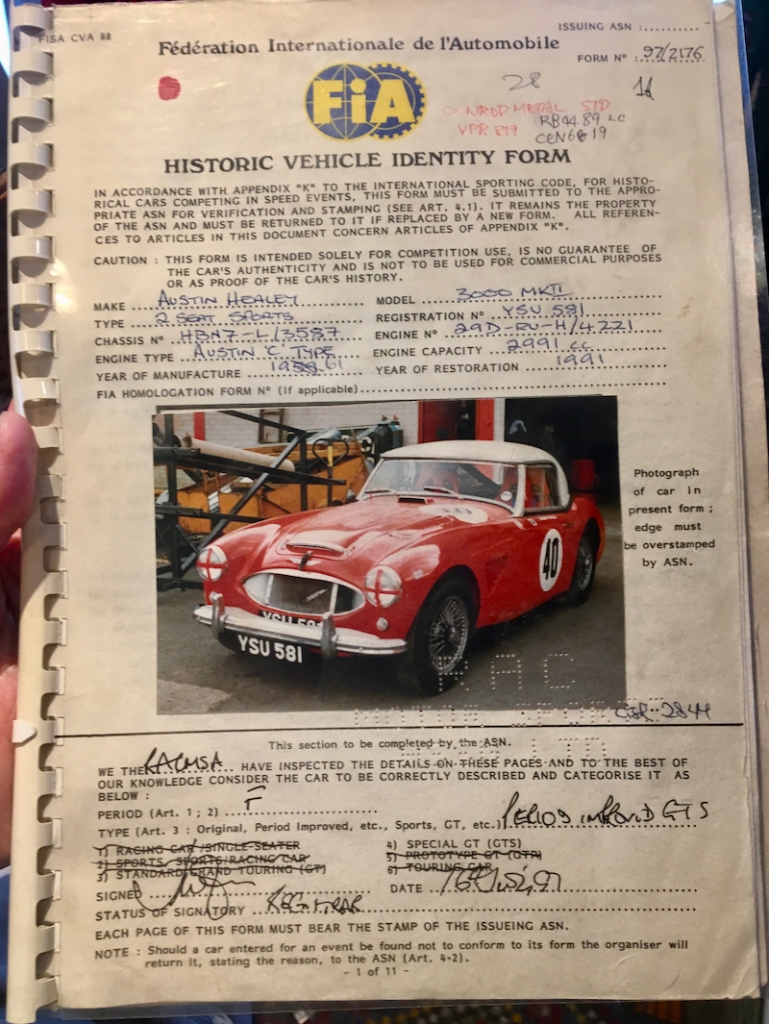 FISA CVA 88
ISSUING ASN :..........
Fédération Internationale de l'Automobile
FORM Nº : 97/2176
FiA
28
CONROD METAL STD
VPR 879
RB4489 LC
HISTORIC VEHICLE IDENTITY FORM
IN ACCORDANCE WITH APPENDIX "K" TO THE INTERNATIONAL SPORTING CODE, FOR HISTO-
RICAL CARS COMPETING IN SPEED EVENTS, THIS FORM MUST BE SUBMITTED TO THE APPRO-
PRIATE ASN FOR VERIFICATION AND STAMPING (SEE ART. 4.1). IT REMAINS THE PROPERTY
OF THE ASN AND MUST BE RETURNED TO IT IF REPLACED BY A NEW FORM. ALL REFEREN-
CES TO ARTICLES IN THIS DOCUMENT CONCERN ARTICLES OF APPENDIX "K".
CAUTION : THIS FORM IS INTENDED SOLELY FOR COMPETITION USE, IS NO GUARANTEE OF
THE CAR'S AUTHENTICITY AND IS NOT TO BE USED FOR COMMERCIAL PURPOSES
OR AS PROOF OF THE CAR'S HISTORY.
MAKE AUSTIN HEALEY MODEL 3000 MKII
TYPE 2 SEAT SPORTS REGISTRATION Nº YSU 581
CHASSIS Nº HBN7-L/3587 ENGINE Nº 29D-RU-H/4221
ENGINE TYPE AUSTIN 'C' TYPE ENGINE CAPACITY 2991 cc
YEAR OF MANUFACTURE 1961 YEAR OF RESTORATION 1991
FIA HOMOLOGATION FORM Nº (If applicable)
40
40
YSU 581
YSU 581
Photograph
of car in
present form ;
edge must
be overstamped
by ASN.
RAC
This section to be completed by the ASN.
WE THE RACMSA HAVE INSPECTED THE DETAILS ON THESE PAGES AND TO THE BEST OF
OUR KNOWLEDGE CONSIDER THE CAR TO BE CORRECTLY DESCRIBED AND CATEGORISE IT AS
BELOW :
PERIOD (Art. 1 ; 2) F
TYPE (Art. 3 : Original, Period Improved, etc., Sports, GT, etc.) PERIOD IMPROVED GTS
1) RACING CAR/SINGLE-SEATER 4) SPECIAL GT (GTS)
2) SPORTS, SPORTS/RACING CAR 5) PROTOTYPE GT (GTP)
3) STANDARD GRAND TOURING (GT) 6) TOURING CAR
SIGNED DATE
STATUS OF SIGNATORY REGISTRAR
EACH PAGE OF THIS FORM MUST BEAR THE STAMP OF THE ISSUEING ASN.
NOTE : Should a car entered for an event be found not to conform to its form the organiser will
return it, stating the reason, to the ASN (Art. 4.2).
- 1 of 11 -